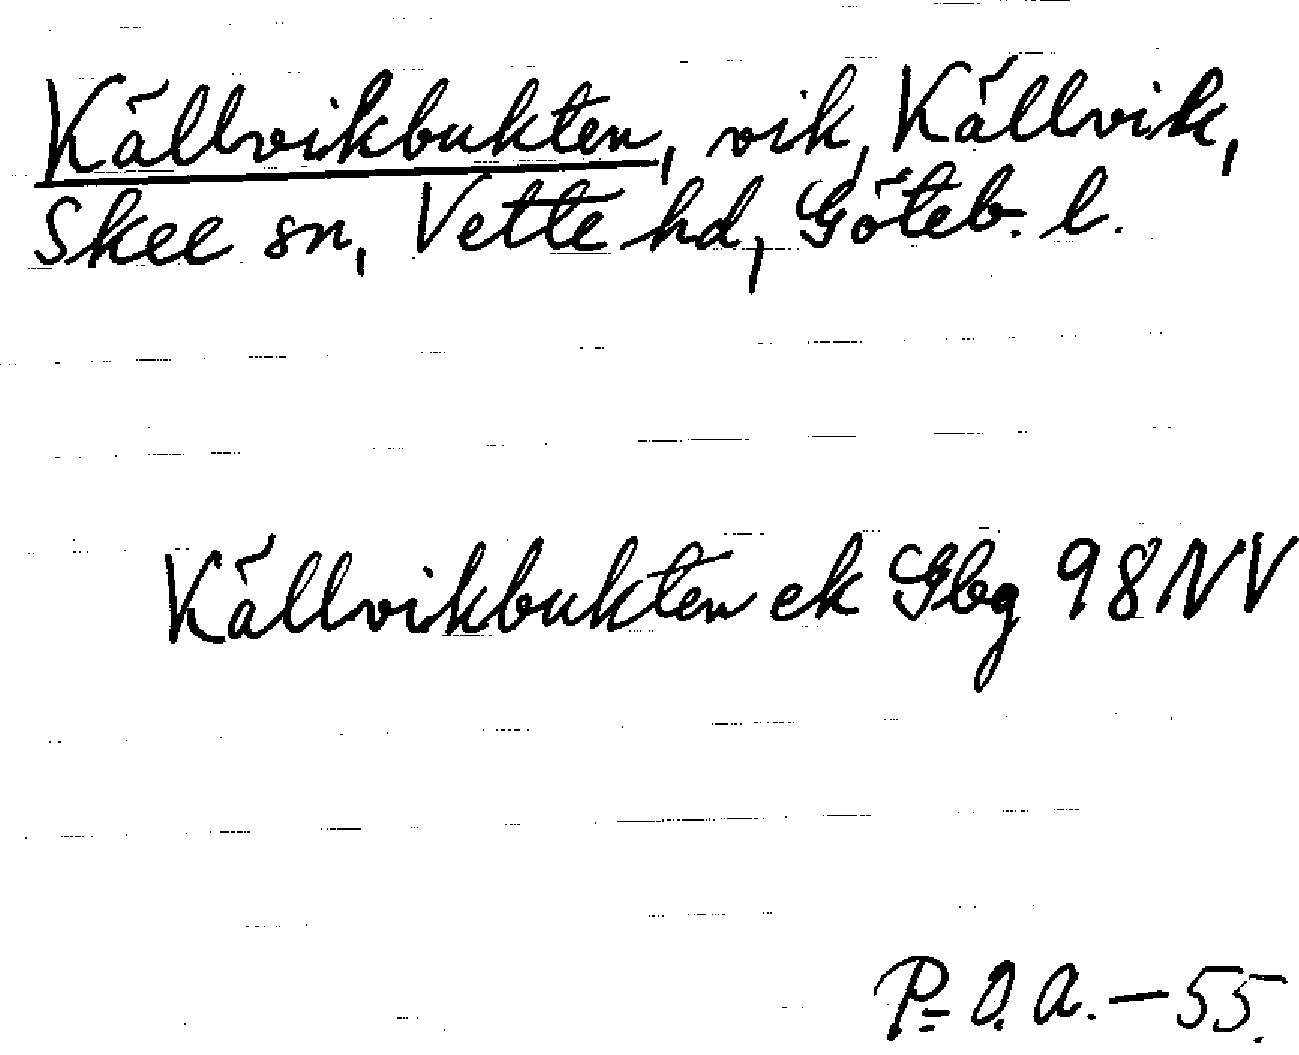 Källvikbukten, vik, Källvik,
Skee sn, Vette hd, Göteb. l.
Källvikbukten ek Gbg 98NV
P-O.A.-55.